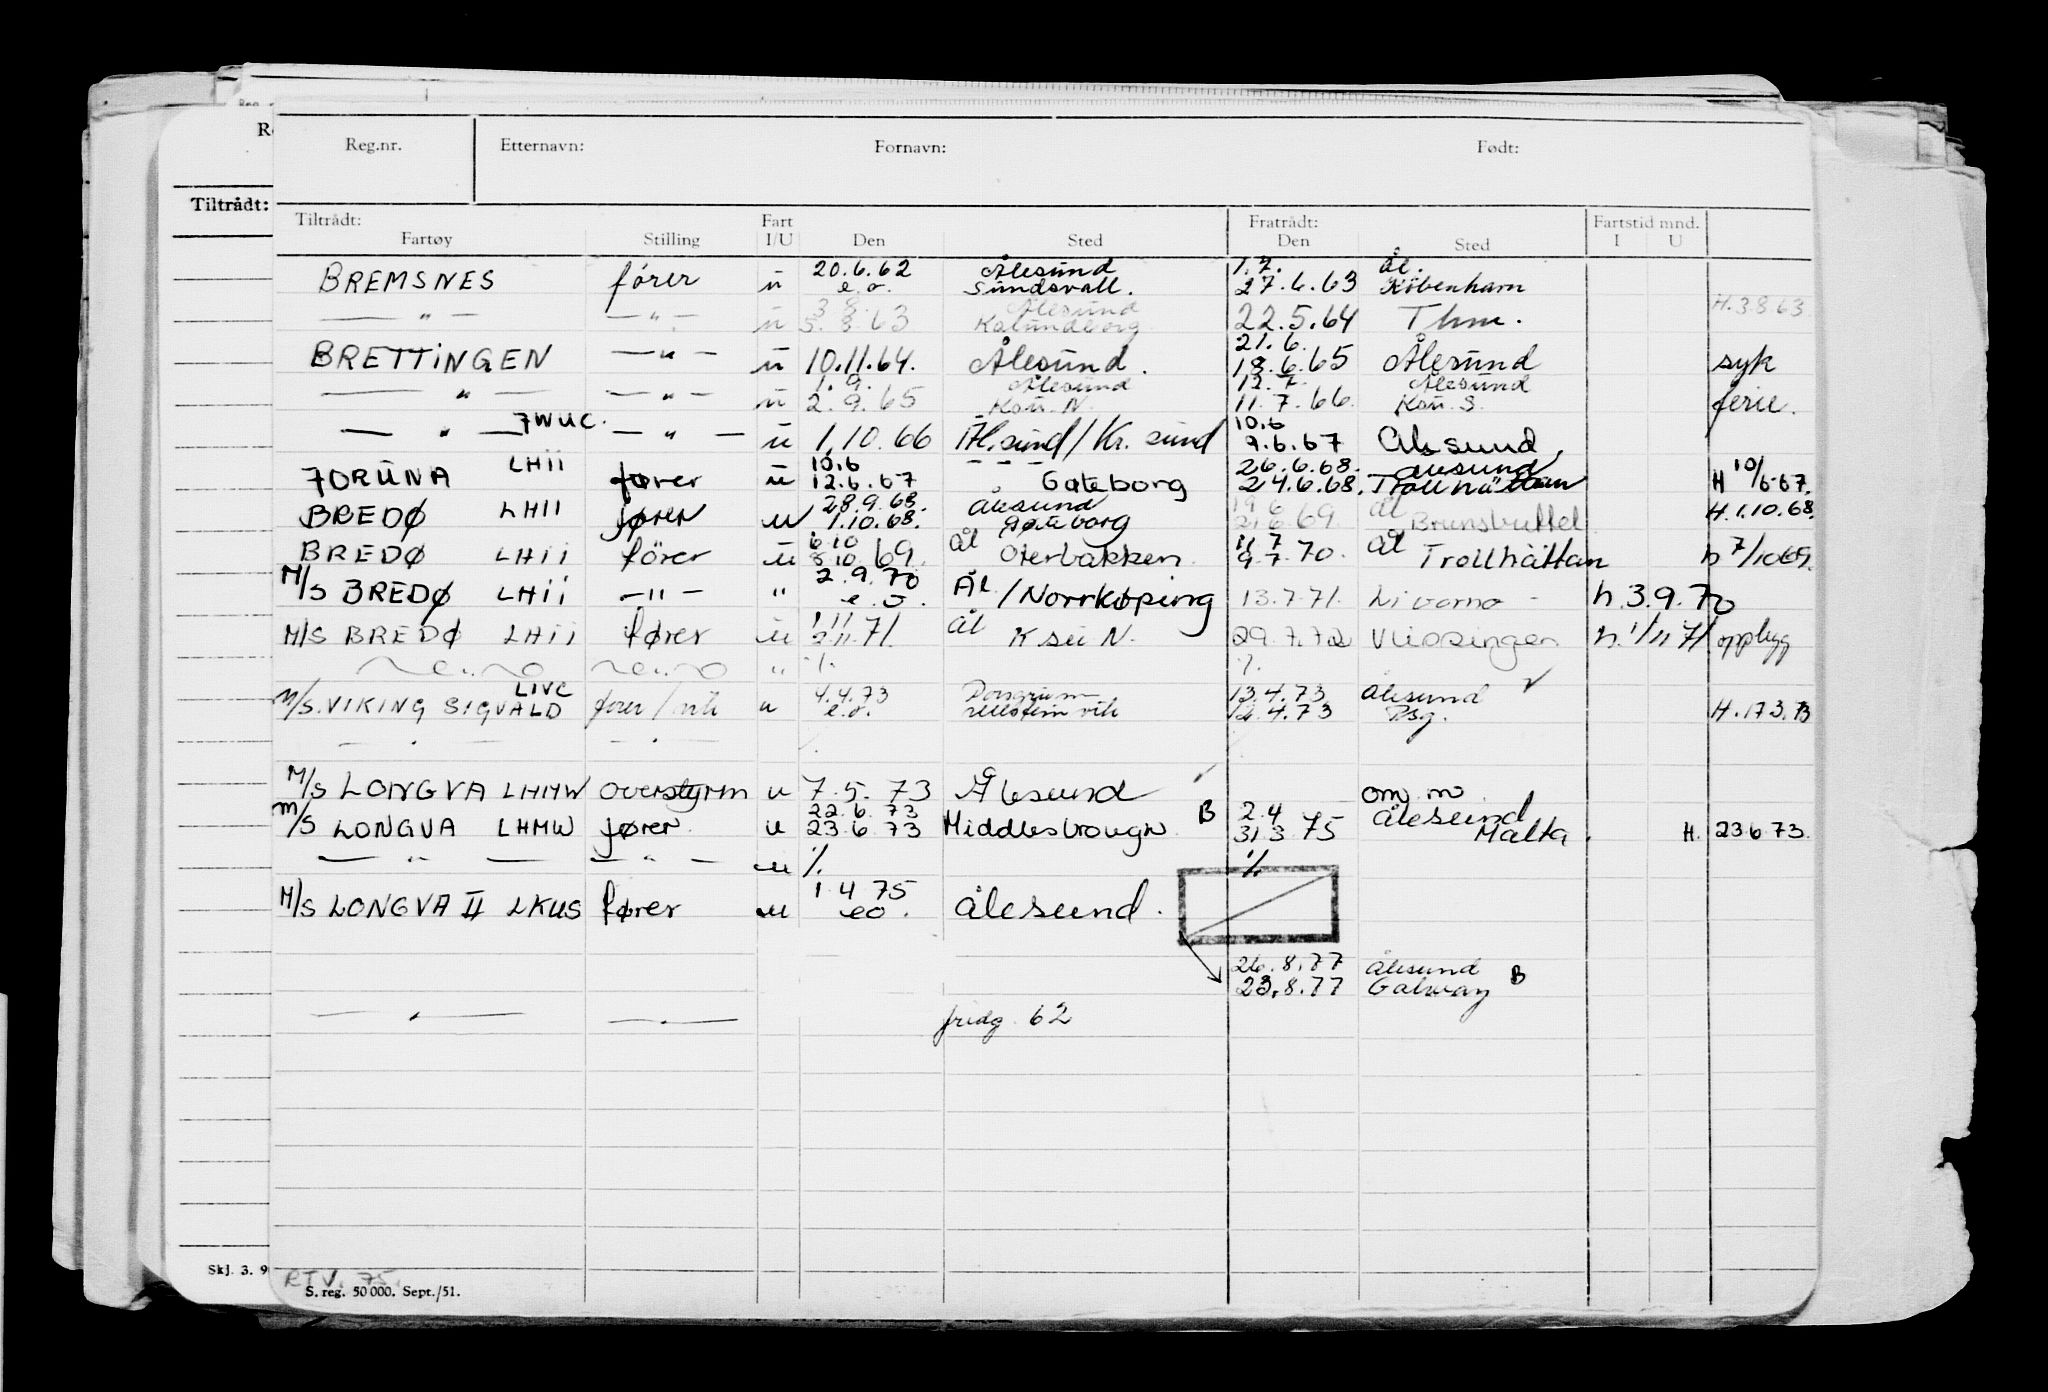 Reg.nr. Etternavn: Fornavn: Født:
Tiltrådt:
Tiltrådt: Fart Fratrådt: Fartstid mnd.
Fartøy Stilling I/U Den Sted Den Sted I U
BREMSNES fører u 20.6.62 Ålesund 1.7. Ål.
e.o. Sundsvall. 27.6.63 København
— " — — " — u 3.8. Ålesund
5.8.63 Kalundborg 22.5.64 Thm. H.3.8.63
BRETTINGEN — " — u 10.11.64. Ålesund. 21.6.
18.6.65 Ålesund syk
— " — — " — u 1.9. Ålesund 12.7. Ålesund
2.9.65 Ksu. N. 11.7.66. Ksu. S. ferie.
— " — — " — u 1.10.66 Ål.sund/Kr. sund 10.6
9.6.67 Ålesund.
LHII fører u 10.6 — — — 26.6.68. Ålesund
12.6.67 Gøteborg 24.6.68. Trollhättan H 10/6-67.
BREDØ LHII fører u 28.9.68. Ålesund 19 6 Ål
1.10.68. Gøteborg 21.6.69. Brunsbuttel H.1.10.68.
BREDØ LHII fører u 6 10 Ål 11 7 Ål
8 10 69. Oterbakken. 9.7.70. Trollhättan h 7/10 69.
M/S BREDØ LHII — " — " 2.9.70 Ål
e.o. /Norrkøping 13.7.71. Livorno - h.3.9.70
M/S BREDØ LHII fører u 1 11 Ål
2.11.71. Ksu N. 29.7.72 Vlissingen h.1/11 71 opplygg
" ./. ./.
M/S. VIKING SIGVALD LIVC u 4.4.73 13.4.73 Ålesund
e.o. 12.4.73 H.173.B
— " — — " — ./.
M/S LONGVA LHMW overstyrm u 7.5.73 Ålesund om. m
M/S LONGVA LHMW fører u 22.6.73 B 2.4 Ålesund
23 6 73 Middlesbrough 31 3 75 Malta. H. 23.6.73.
— " — — " — u ./. ./.
M/S LONGVA II LKUS fører u 1 4 75
eo. Ålesund.
26.8.77 Ålesund
23.8.77 Galway B
— " — — " — fridg. 62
Skj. 3. 9
RTV. 75.
S. reg. 50 000. Sept./51.